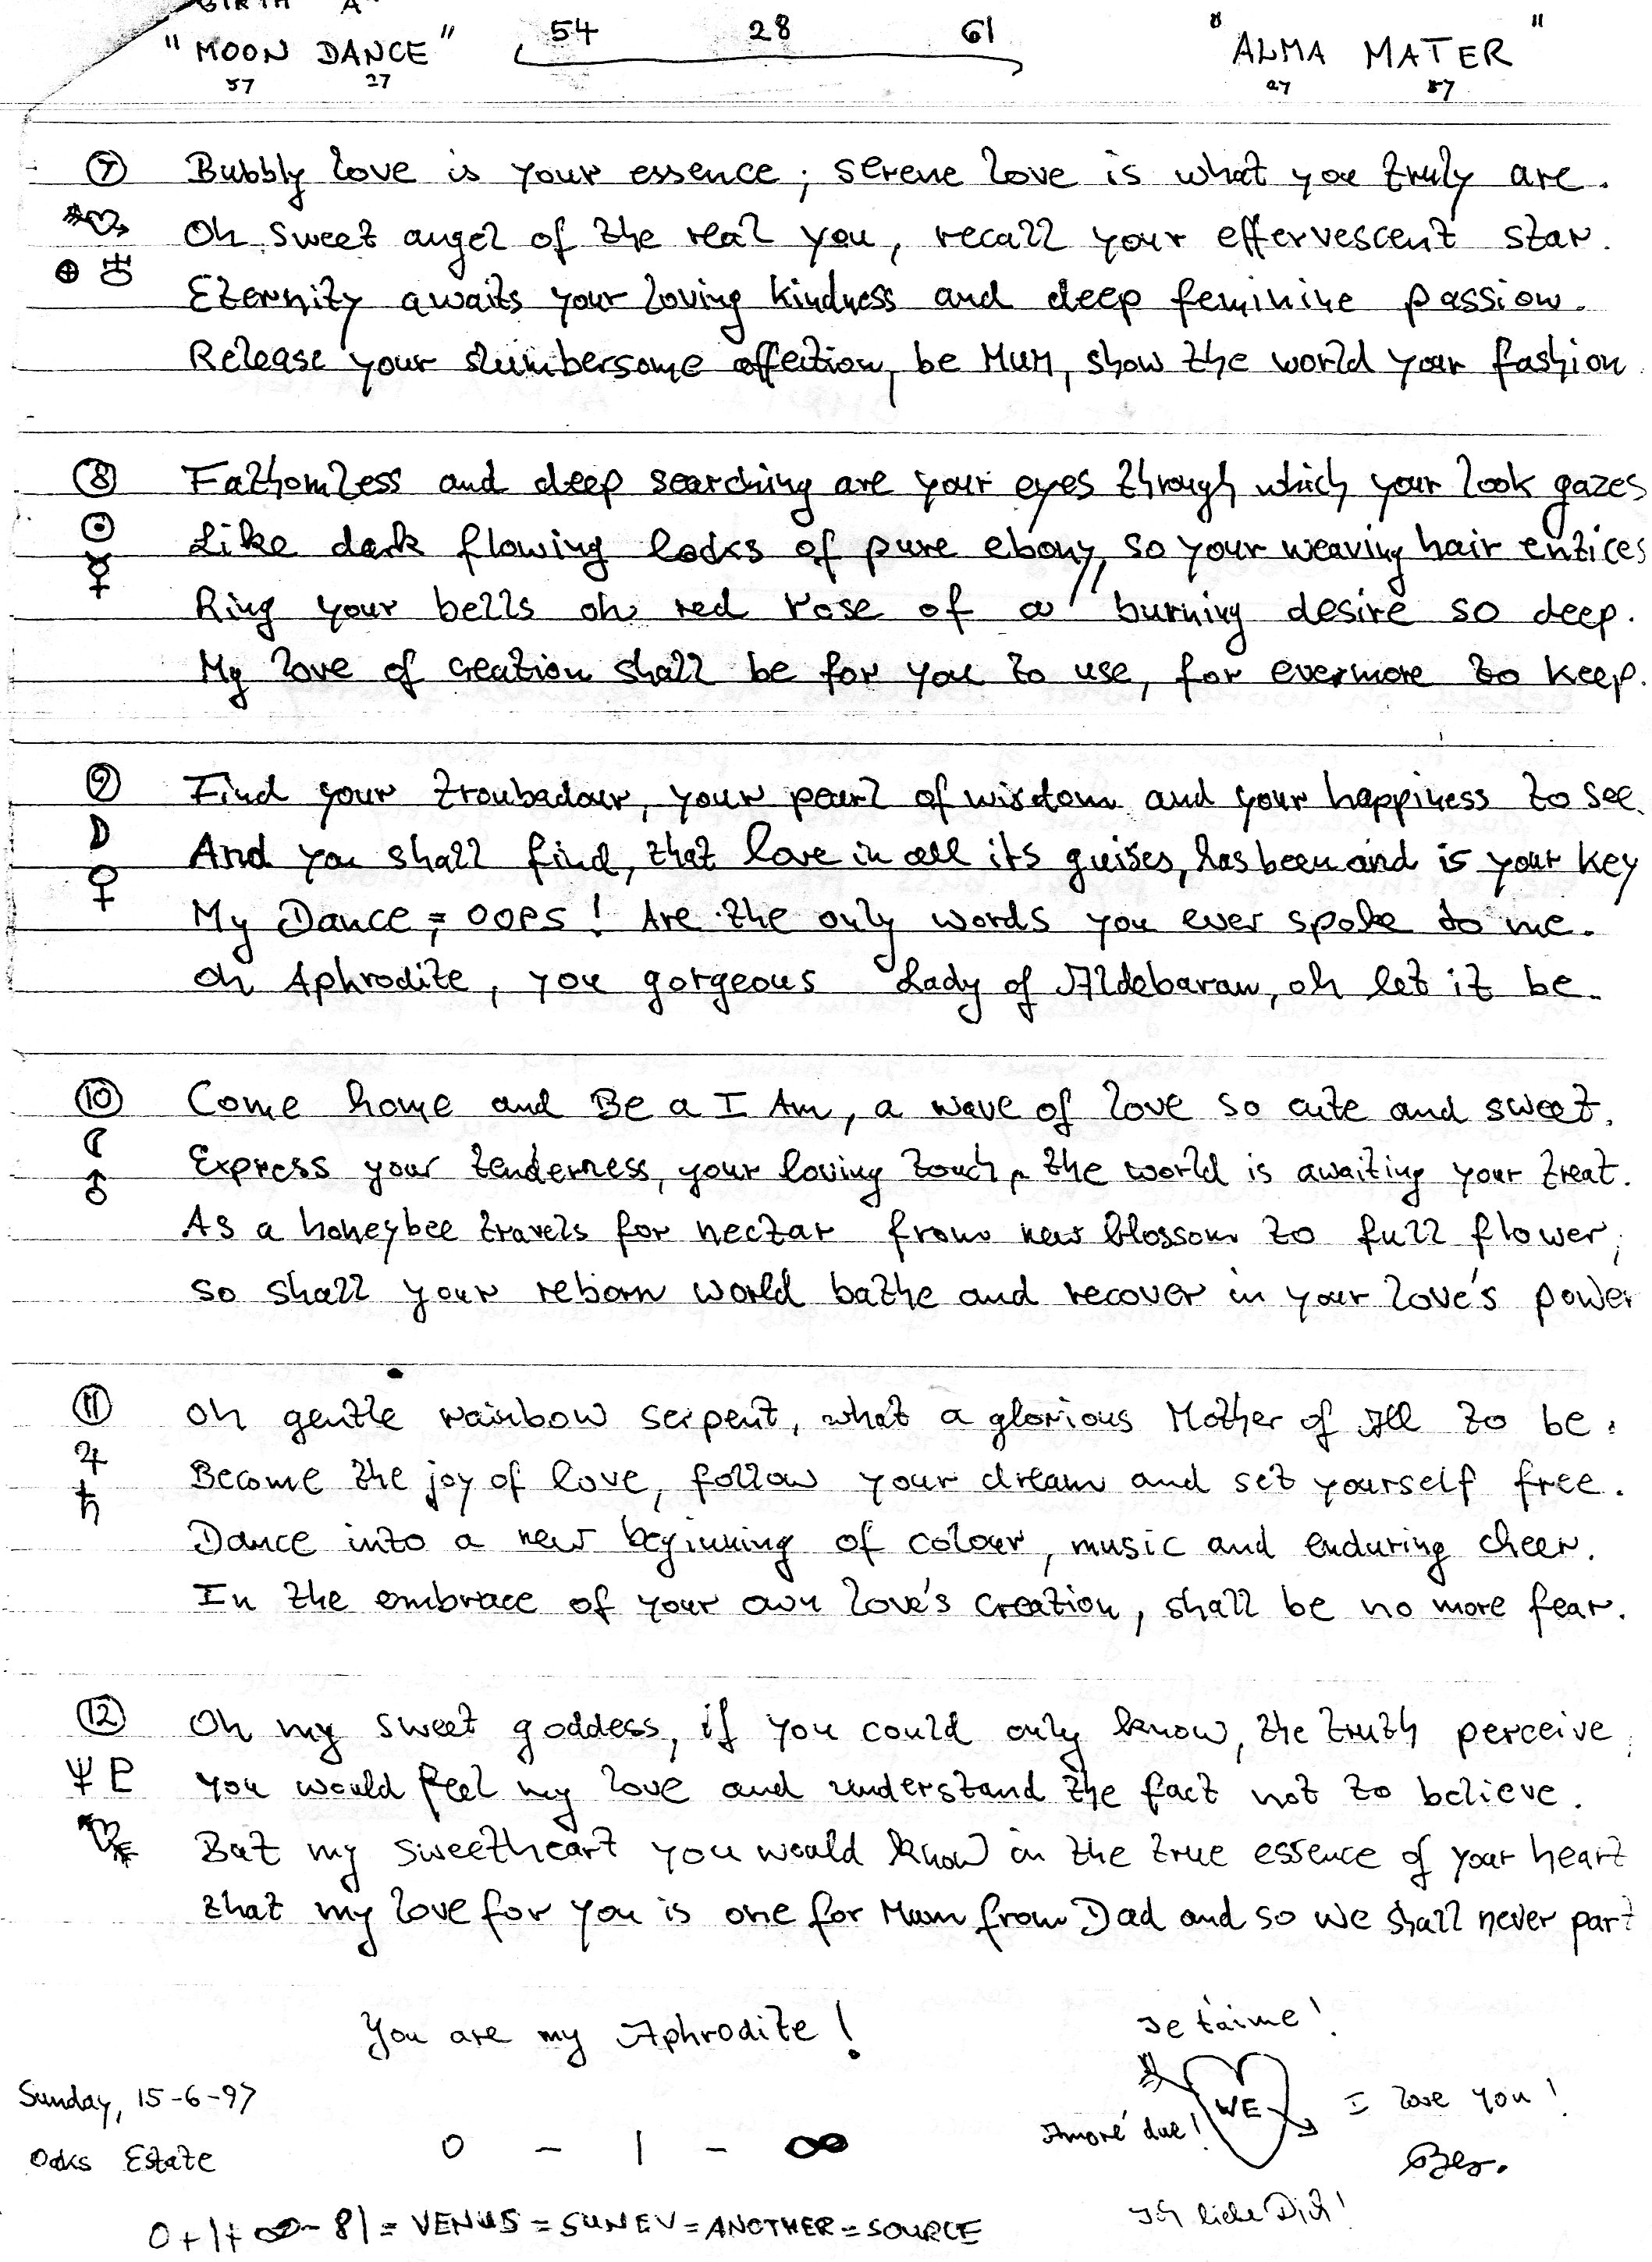 BIRTH A
"MOON DANCE" 54 28 61 "ALMA MATER"
57 27 27 57
⑦ Bubbly love is your essence; serene love is what you truly are.
Oh sweet angel of the real you, recall your effervescent star.
Eternity awaits your loving kindness and deep feminine passion.
Release your slumbersome affection, be MUM, show the world your fashion
⑧ Fathomless and deep searching are your eyes through which your look gazes
☉ Like dark flowing locks of pure ebony, so your weaving hair entices
☿ Ring your bells oh red rose of a burning desire so deep.
My love of creation shall be for you to use, for evermore to keep.
⑨ Find your troubadour, your pearl of wisdom and your happiness to see
☽ And you shall find, that love in all its guises, has been and is your key
♀ My Dance, = OOPS! Are the only words you ever spoke to me.
Oh Aphrodite, you gorgeous Lady of Aldebaran, oh let it be.
⑩ Come home and Be a I Am, a wave of love so cute and sweet.
☾ Express your tenderness, your loving touch, the world is awaiting your treat.
♂ As a honeybee travels for nectar from new blossom to full flower,
so shall your reborn world bathe and recover in your love's power
⑪ Oh gentle rainbow serpent, what a glorious Mother of All to be.
♃ Become the joy of love, follow your dream and set yourself free.
♄ Dance into a new beginning of colour, music and enduring cheer.
In the embrace of your own love's creation, shall be no more fear.
⑫ Oh my sweet goddess, if you could only know, the truth perceive,
♆ ♇ you would feel my love and understand the fact not to believe.
But my sweetheart you would know in the true essence of your heart
that my love for you is one for Mum from Dad and so we shall never part
You are my Aphrodite! Je t'aime!
Sunday, 15-6-97 WE I love you!
Amoré due!
Oaks Estate 0 - 1 - ∞
Ich liebe Dich!
0+1+∞-81 = VENUS = SUNEV = ANOTHER = SOURCE